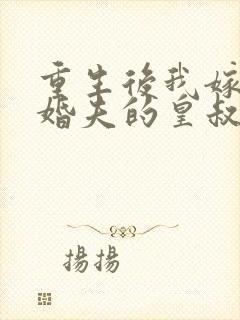 重生後我嫁
婚夫的皇叔
揚揚